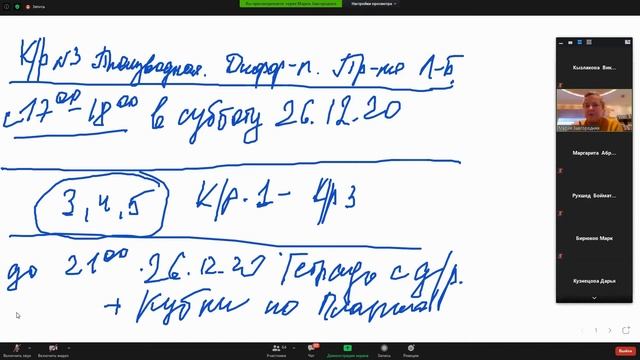 Запись
Вы просматриваете экран Мария Завгородняя
Настройки просмотра
К/р №3 Производная. Дифф-л. Пр-ие 1-Б
с 17⁰⁰-18⁰⁰ в субботу 26.12.20
3, 4, 5 К/р.1 - К/р 3
до 21⁰⁰ . 26.12.20 Тетрадь с д/р.
+ Кубки по
Кызлакова Вик...
Мария Завгородняя
Маргарита Абр...
Рухшед Боймат...
Бирюков Марк
Кузнецова Дарья
1
Включить звук
Включить видео
64
Участники
Чат
Демонстрация экрана
Запись
Реакции
Выйти